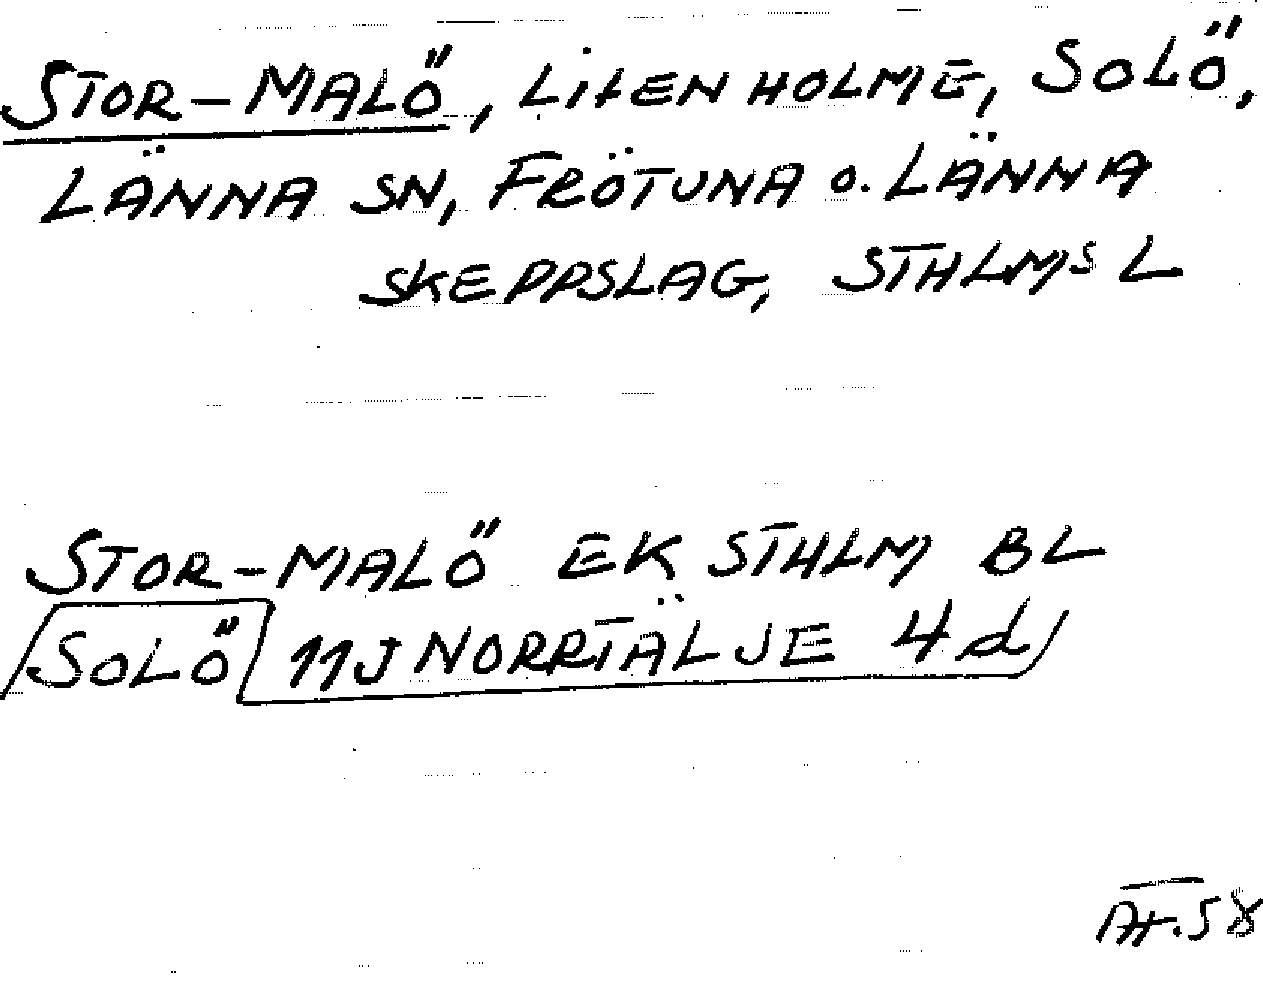 STOR-MALÖ, LITEN HOLME, SOLÖ,
LÄNNA SN, FRÖTUNA O. LÄNNA
SKEPPSLAG, STHLMS L
STOR-MALÖ EK STHLM BL
SOLÖ 11J NORRTÄLJE 4d
58